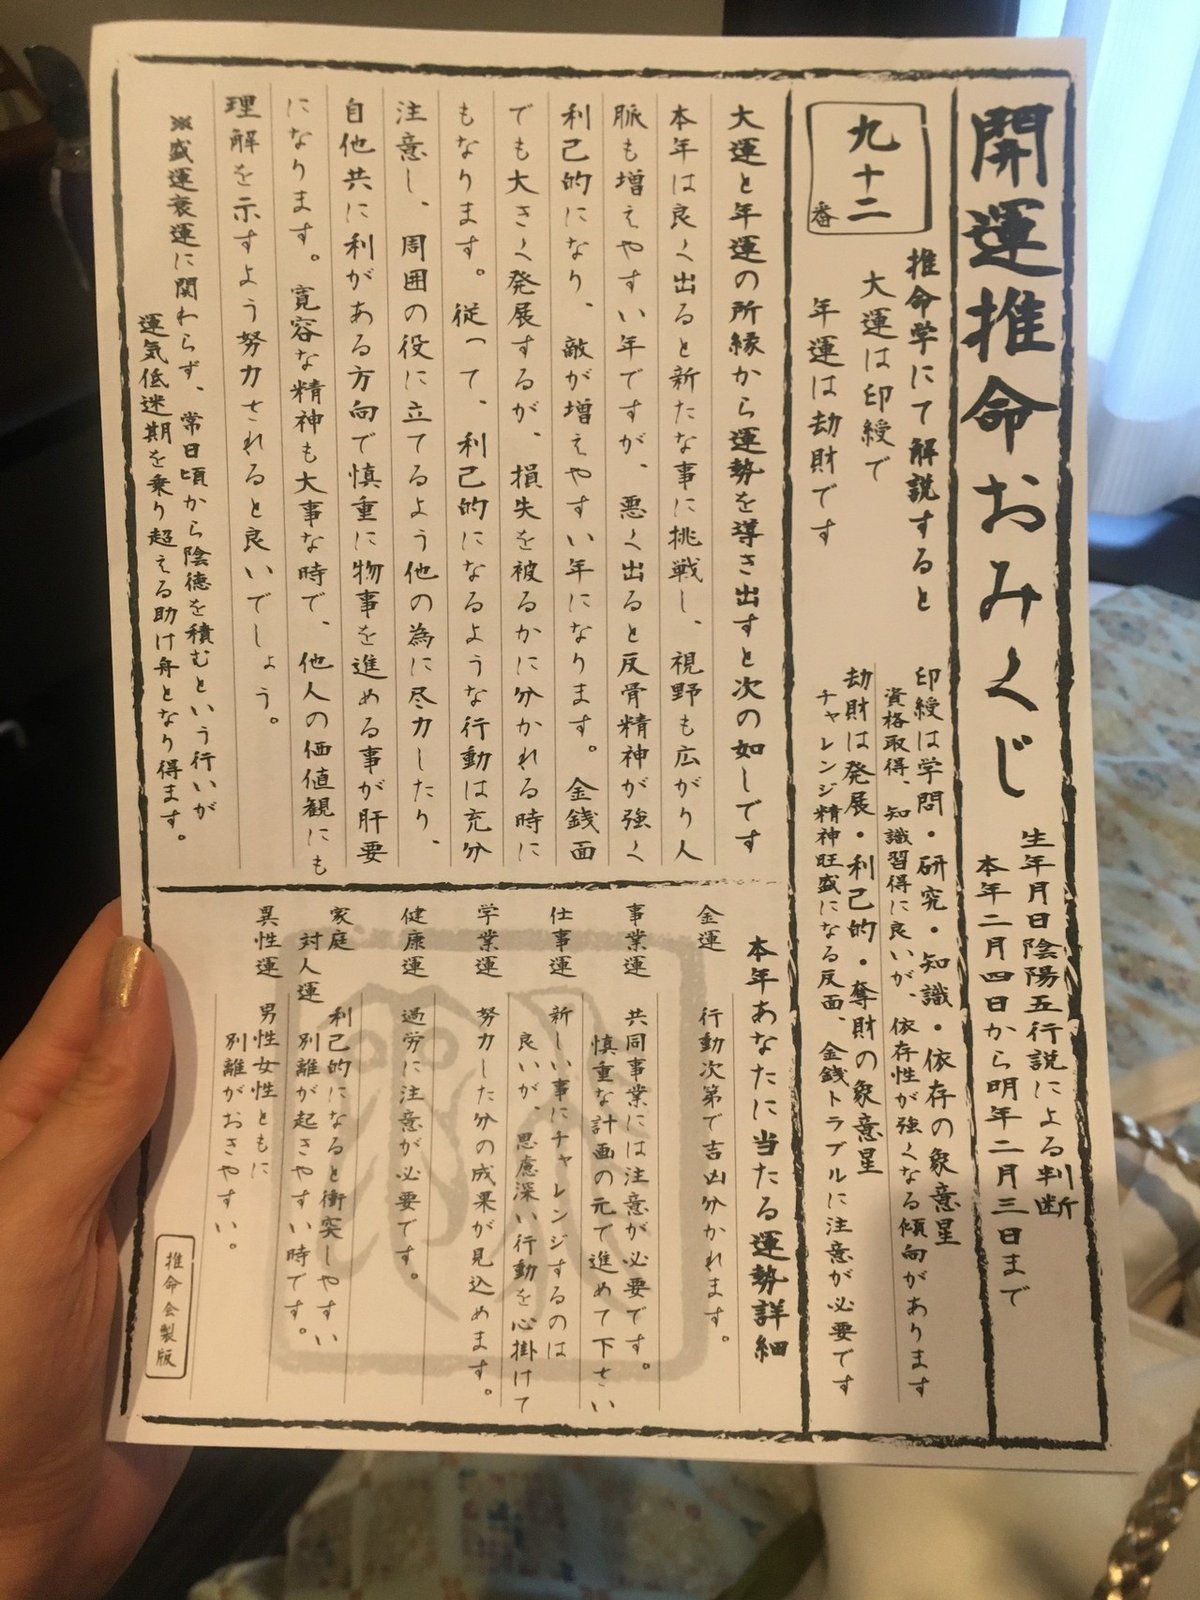 開運推命おみくじ
生年月日陰陽五行説による判断
本年二月四日から明年二月三日まで
九十二番
推命学にて解説すると
大運は印綬で
年運は劫財です
印綬は学問・研究・知識・依存の象意星
資格取得、知識習得に良いが、依存性が強くなる傾向があります
劫財は発展・利己的・奪財の象意星
チャレンジ精神旺盛になる反面、金銭トラブルに注意が必要です
大運と年運の所縁から運勢を導き出すと次の如しです
本年は良く出ると新たな事に挑戦し、視野も広がり人
脈も増えやすい年ですが、悪く出ると反骨精神が強く
利己的になり、敵が増えやすい年になります。金銭面
でも大きく発展するが、損失を被るかに分かれる時に
もなります。従って、利己的になるような行動は充分
注意し、周囲の役に立てるよう他の為に尽力したり、
自他共に利がある方向で慎重に物事を進める事が肝要
になります。寛容な精神も大事な時で、他人の価値観にも
理解を示すよう努力されると良いでしょう。
※盛運衰運に関わらず、常日頃から陰徳を積むという行いが
運気低迷期を乗り超える助け舟となり得ます。
本年あなたに当たる運勢詳細
金運
行動次第で吉凶分かれます。
事業運
共同事業には注意が必要です。
慎重な計画の元で進めて下さい
仕事運
新しい事にチャレンジするのは
良いが、思慮深い行動を心掛けて
学業運
努力した分の成果が見込めます。
健康運
過労に注意が必要です。
家庭
対人運
利己的になると衝突しやすい
別離が起きやすい時です。
異性運
男性女性ともに
別離がおきやすい。
推命会製版